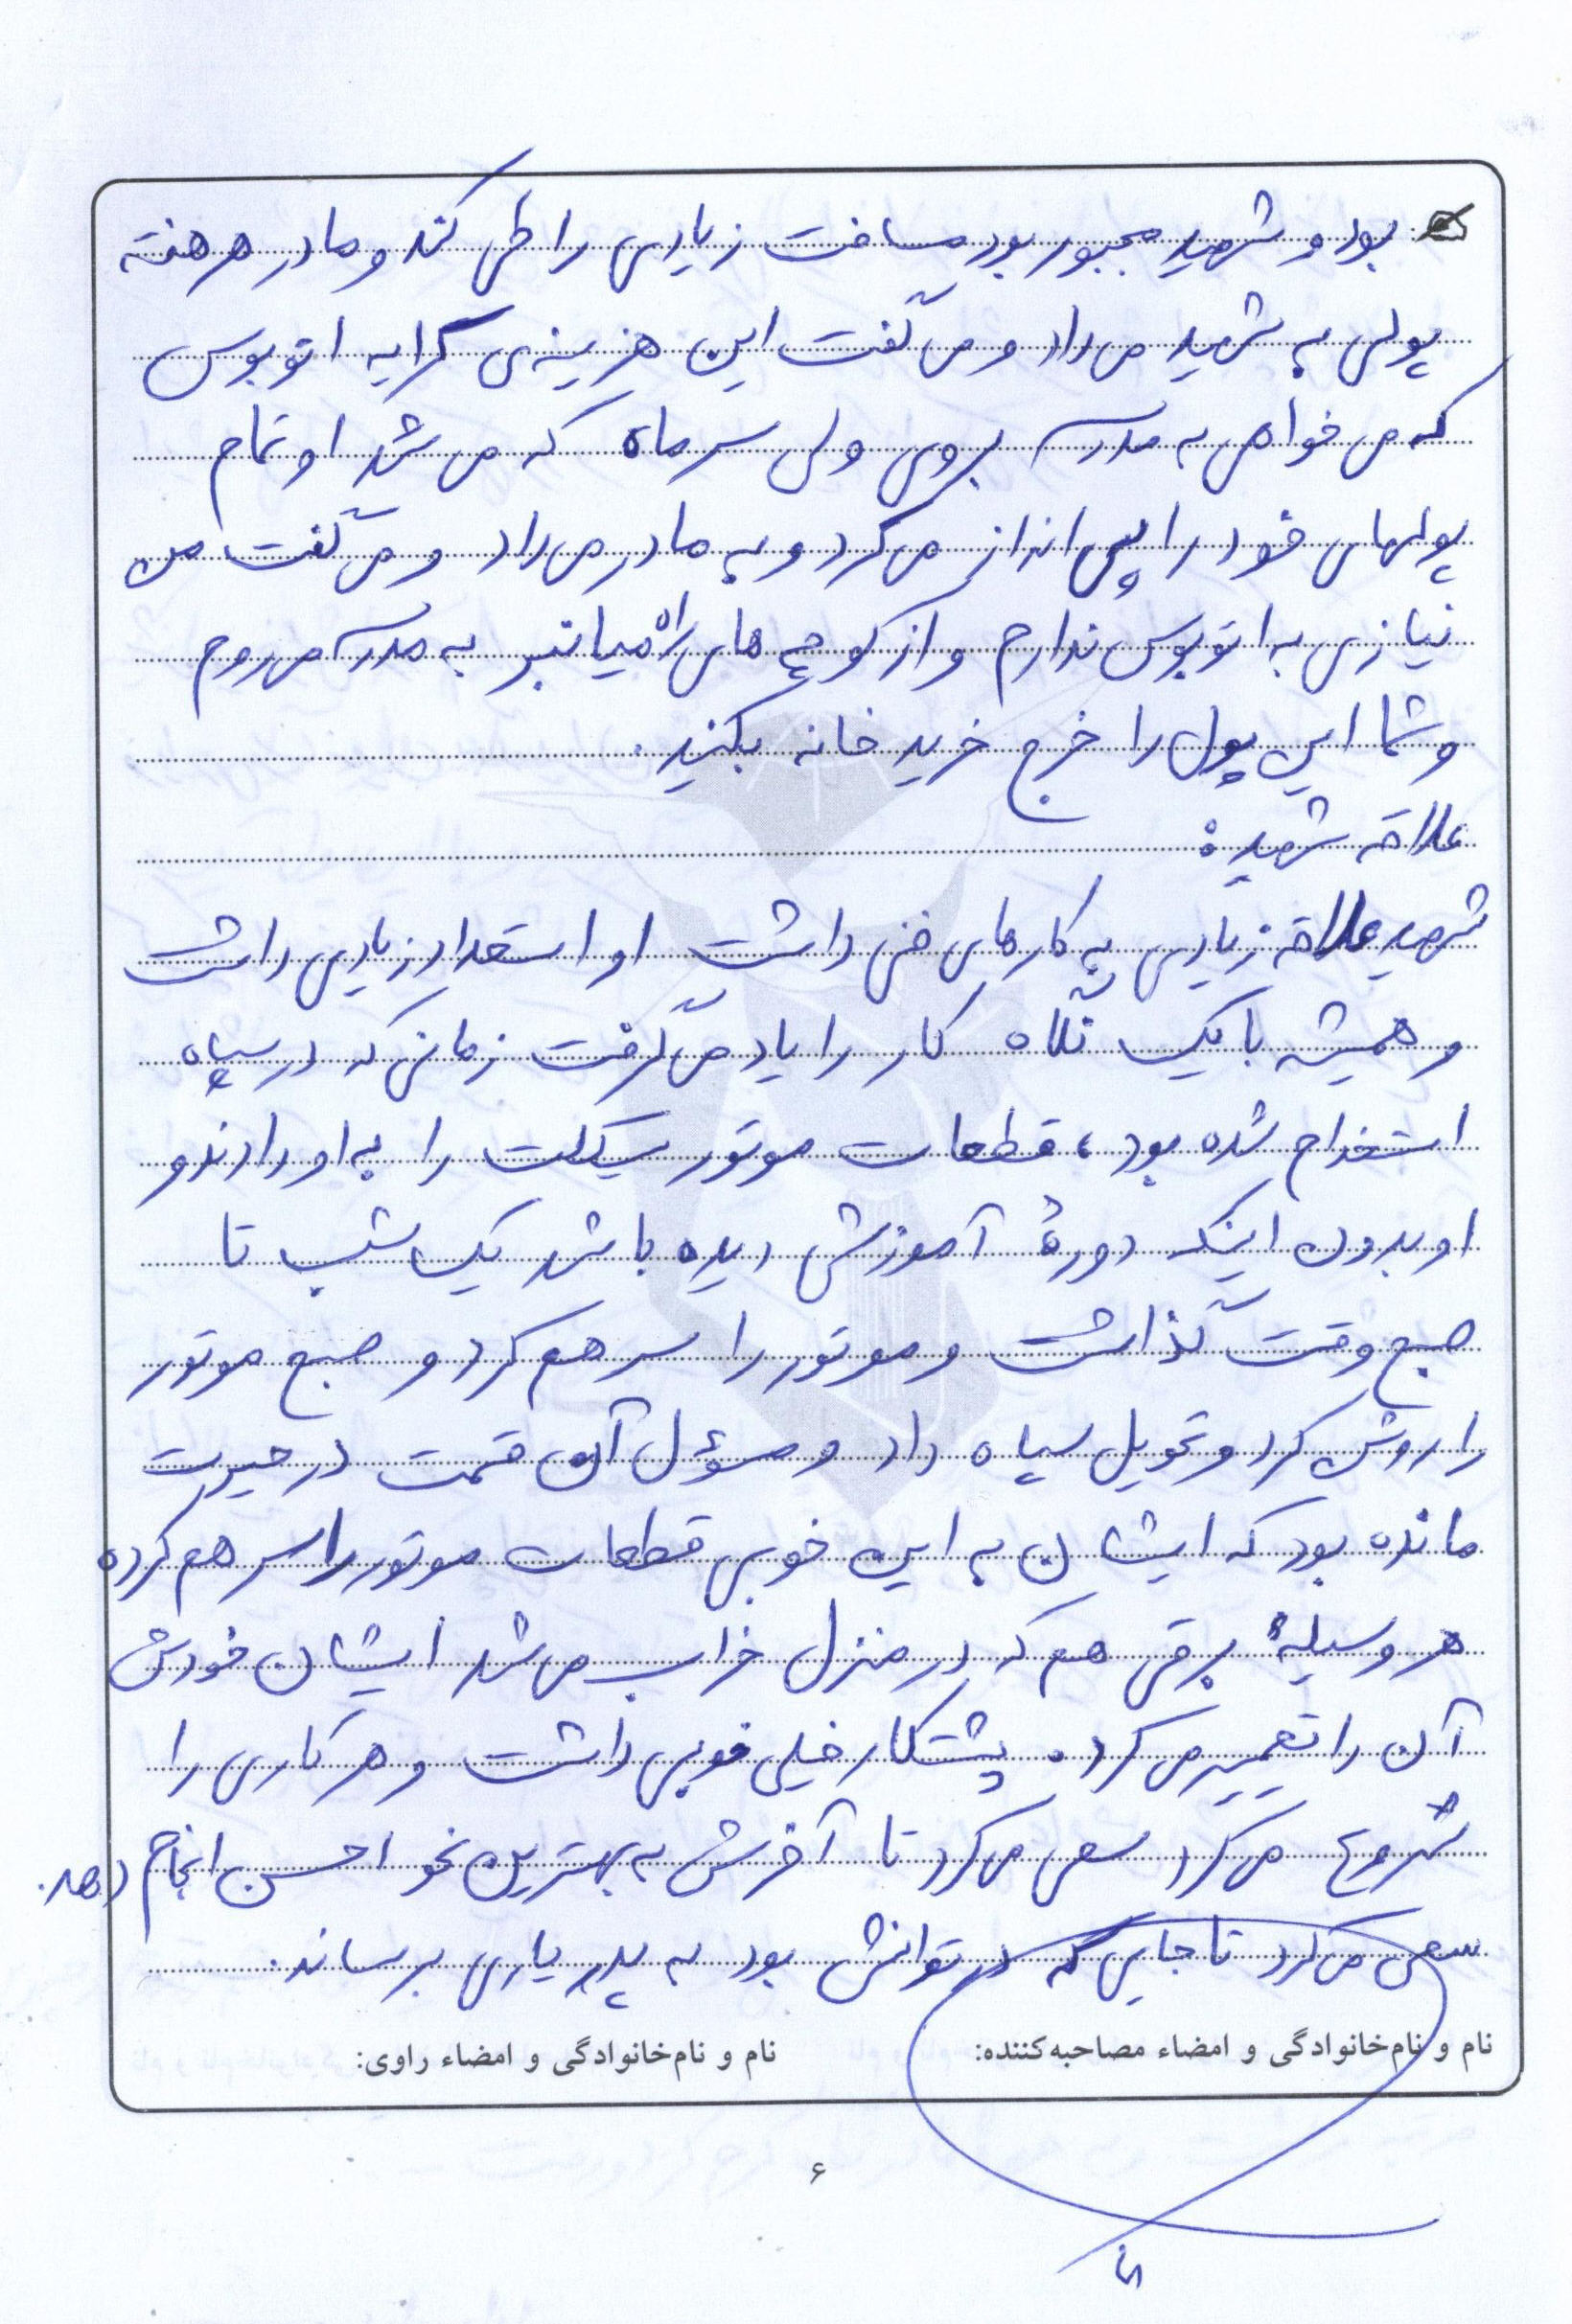 بود و شهید مجبور بود مسافت زیادی را طی کند و مادر هر هفته
پولی به شهید می‌داد و می‌گفت این هزینه‌ی کرایه اتوبوس
که می خواهی به مدرسه بروی ولی سر ماه که می شد او تمام
پولهای خود را پس انداز می‌کرد و به مادر می‌داد و می‌گفت من
نیازی به اتوبوس ندارم و از کوچه های راه میانبر به مدرسه می‌روم
و شما این پول را خرج خرید خانه بکنید.
علاقه شهید:
شهید علاقه زیادی به کارهای فنی داشت او استعداد زیادی داشت
و همیشه با یک نگاه کار را یاد می‌گرفت زمانی که در سپاه
استخدام شده بود، قطعات موتور سیکلت را به او دادند و
او بدون اینکه دورهٔ آموزش دیده باشد یک شب تا
صبح وقت گذاشت و موتور را سر هم کرد و صبح موتور
را روشن کرد و تحویل سپاه داد و مسؤل آن قسمت در حیرت
مانده بود که ایشان به این خوبی قطعات موتور را سر هم کرده
هر وسیلهٔ برقی هم که در منزل خراب می شد ایشان خودش
آن را تعمیر می کرد. پشتکار خیلی خوبی داشت و هر کاری را
شروع می‌کرد سعی می‌کرد تا آخرش به بهترین نحو احسن انجام دهد.
سعی می‌کرد تا جایی که در توانش بود به پدر یاری برساند.
نام و نام‌خانوادگی و امضاء مصاحبه‌کننده: نام و نام‌خانوادگی و امضاء راوی:
۶